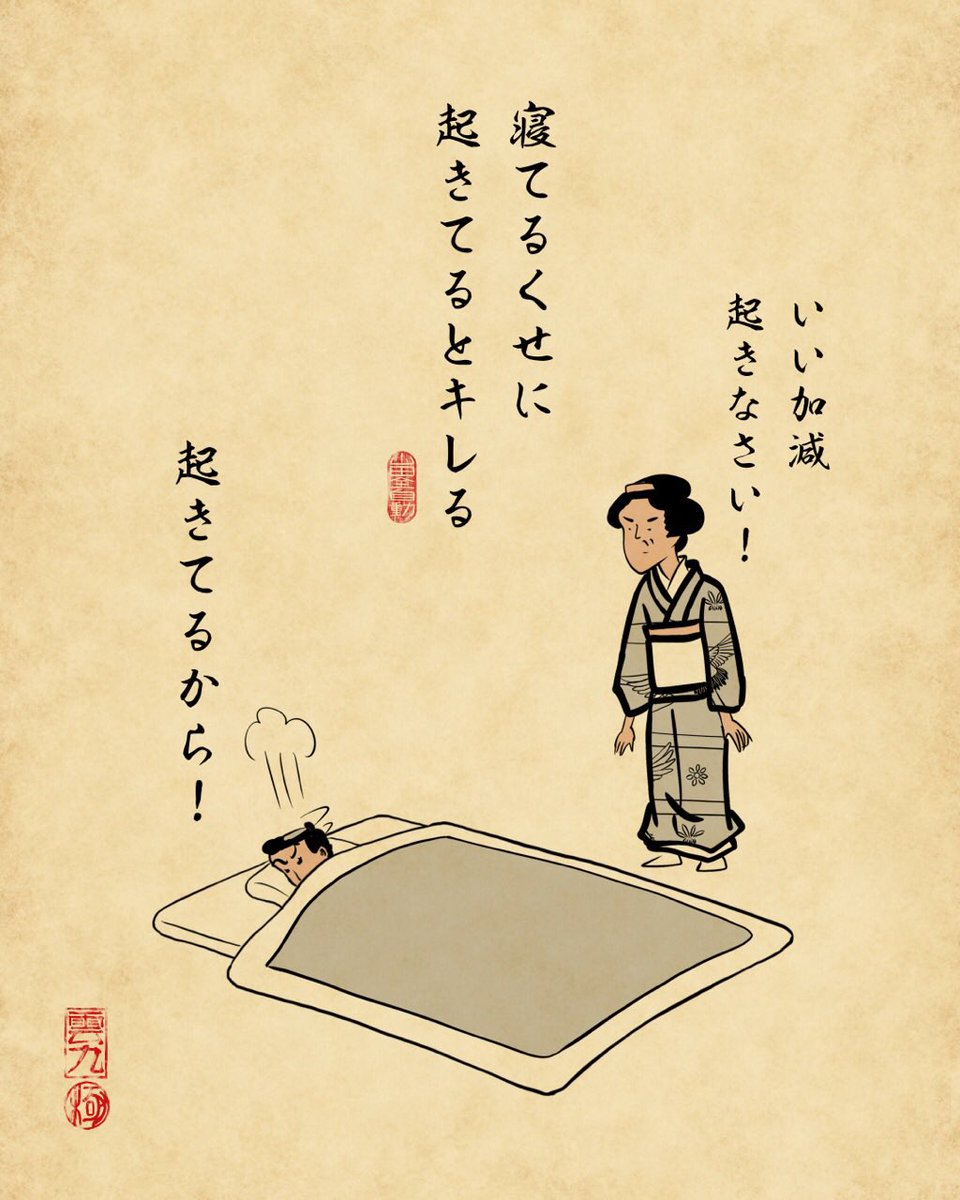 寝てるくせに
起きてるとキレる
いい加減
起きなさい!
起きてるから!